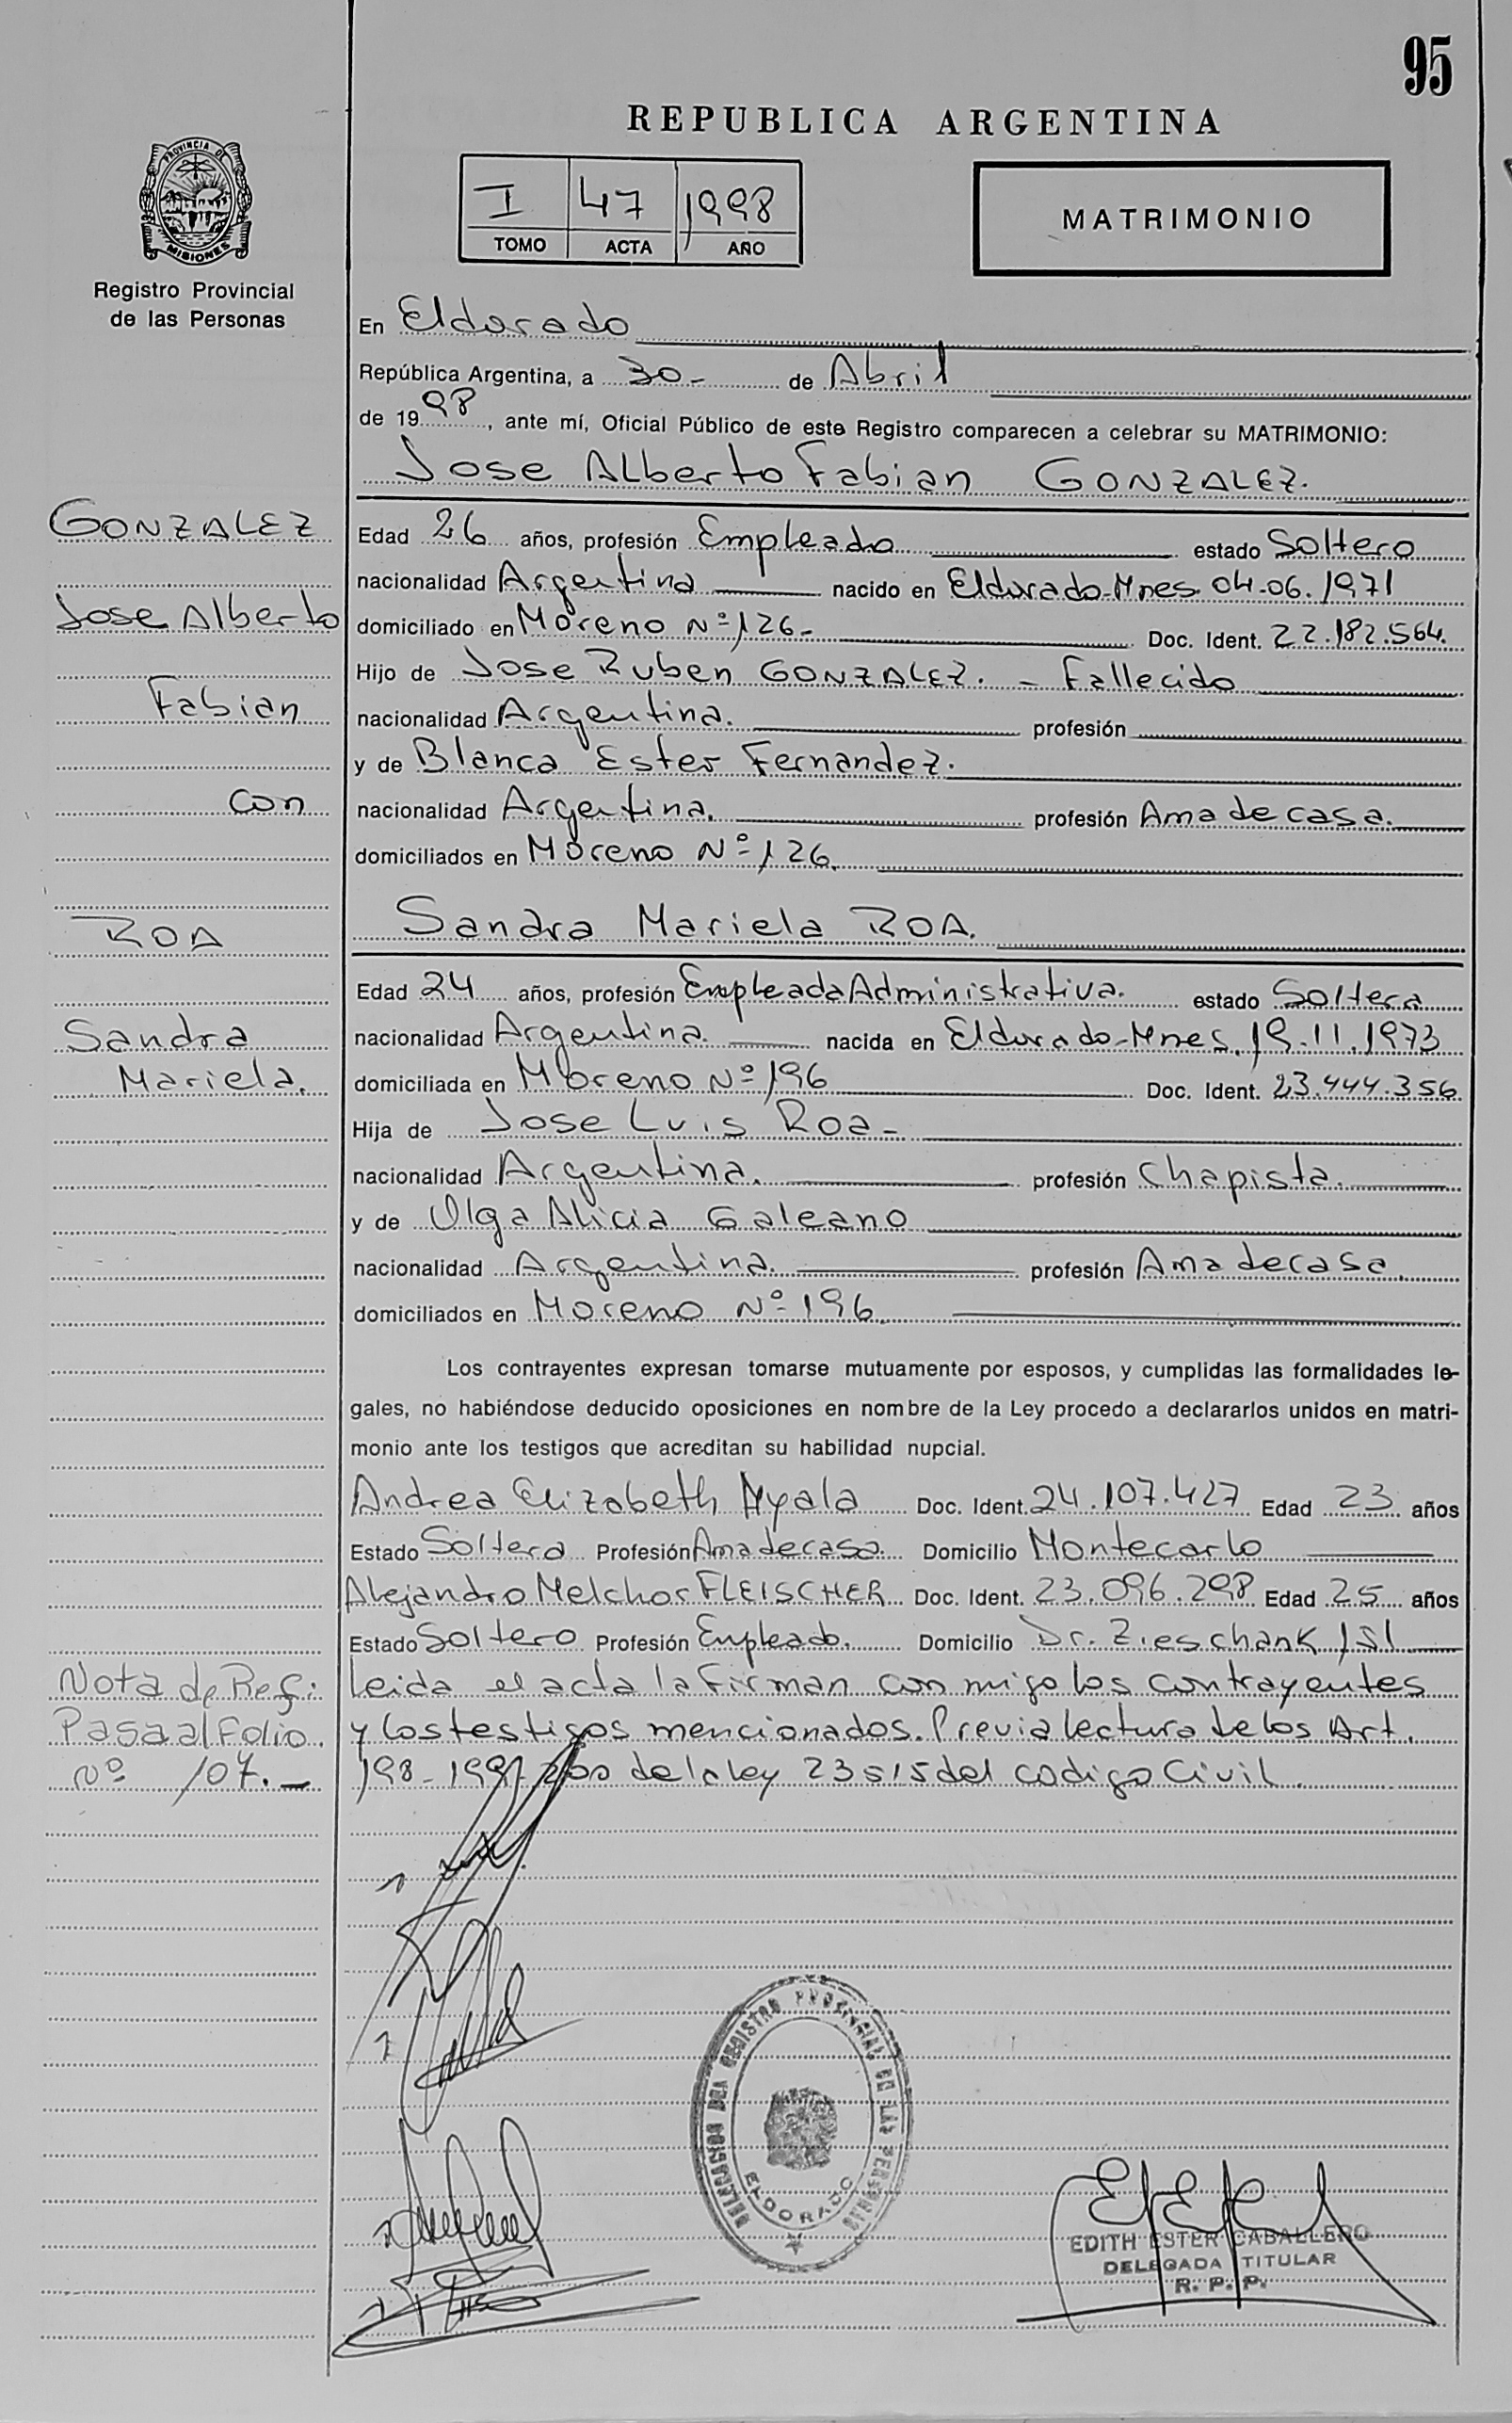 95
REPUBLICA ARGENTINA
PROVINCIA DE
MISIONES
Registro Provincial
de las Personas
I 47 1998
TOMO ACTA AÑO
MATRIMONIO
En Eldorado
República Argentina, a 30- de Abril
de 1998, ante mí, Oficial Público de este Registro comparecen a celebrar su MATRIMONIO:
Jose Alberto Fabian GONZALEZ.
GONZALEZ
Jose Alberto
Fabian
con
ROA
Sandra
Mariela.
Edad 26 años, profesión Empleado estado Soltero
nacionalidad Argentina nacido en Eldorado-Mnes. 04.06.1971
domiciliado en Moreno Nº 126- Doc. Ident. 22.182.564.
Hijo de Jose Ruben GONZALEZ. - Fallecido
nacionalidad Argentina. profesión
y de Blanca Ester Fernandez.
nacionalidad Argentina. profesión Ama de casa.
domiciliados en Moreno Nº 126.
Sandra Mariela ROA.
Edad 24 años, profesión Empleada Administrativa. estado Soltera
nacionalidad Argentina. nacida en Eldorado-Mnes. 19.11.1973
domiciliada en Moreno Nº 196 Doc. Ident. 23.444.356
Hija de Jose Luis Roa-
nacionalidad Argentina. profesión Chapista.
y de Olga Alicia Galeano
nacionalidad Argentina. profesión Ama de casa.
domiciliados en Moreno Nº 196.
Los contrayentes expresan tomarse mutuamente por esposos, y cumplidas las formalidades le-
gales, no habiéndose deducido oposiciones en nombre de la Ley procedo a declararlos unidos en matri-
monio ante los testigos que acreditan su habilidad nupcial.
Andrea Elizabeth Ayala Doc. Ident. 24.107.427 Edad 23 años
Estado Soltera Profesión Ama de casa. Domicilio Montecarlo
Alejandro Melchor FLEISCHER Doc. Ident. 23.096.298 Edad 25 años
Estado Soltero Profesión Empleado. Domicilio Dr. Zieschank
Leida el acta la firman con migo los contrayentes
y los testigos mencionados. Previa lectura de los Art.
198-199-200 de la ley 23515 del codigo Civil.
Nota de Ref:
Pasa al Folio.
Nº 107.-
DELEGACION DEL REGISTRO PROVINCIAL DE LAS PERSONAS
ELDORADO
EDITH ESTER CABALLERO
DELEGADA TITULAR
R. P. P.